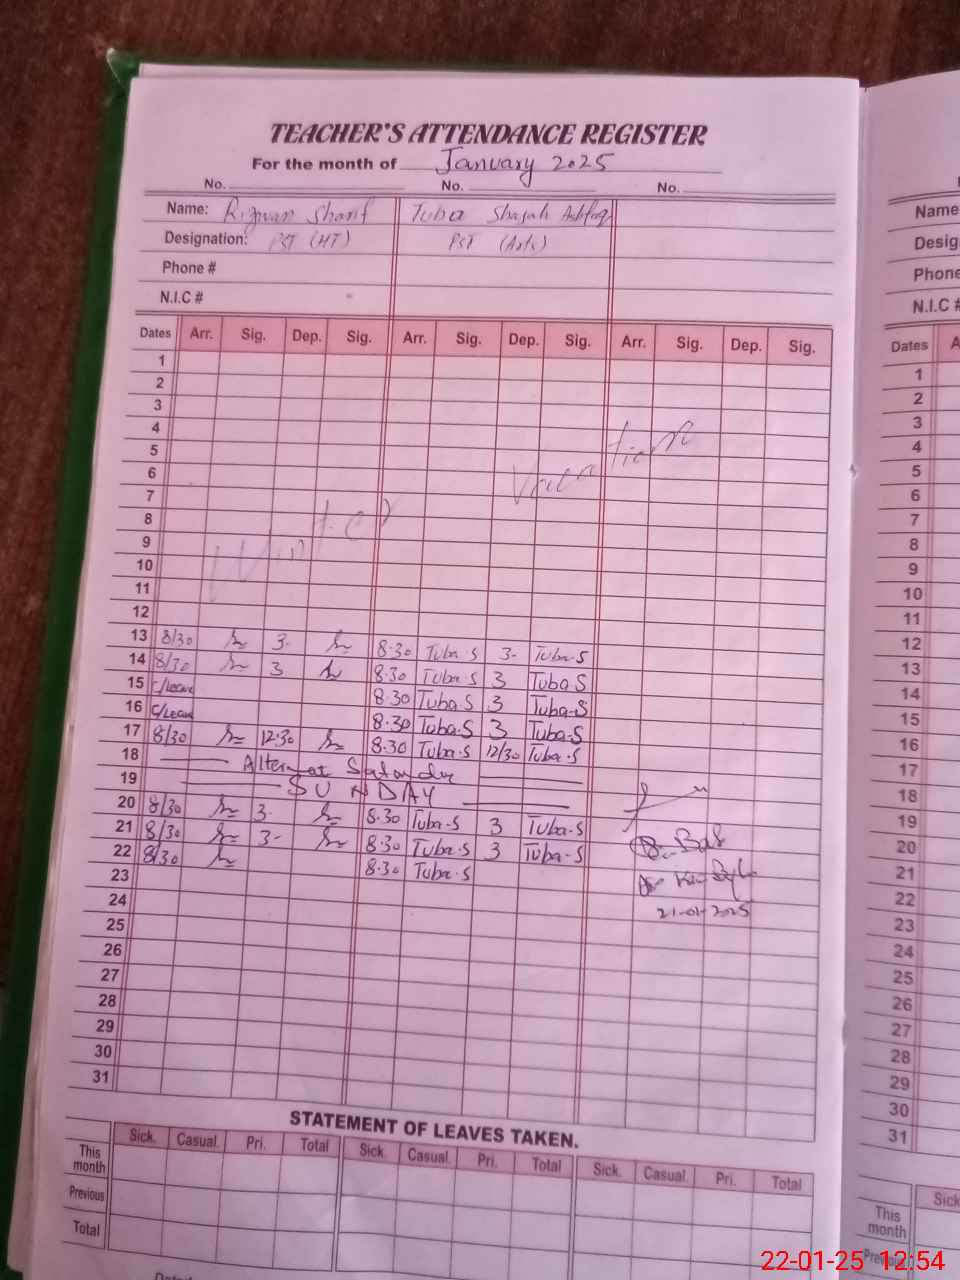 TEACHER'S ATTENDANCE REGISTER
For the month of January 2025
No. No. No.
Name: Rizwan Sharif Tuba Shafah Ashfaq
Designation: PST (HT) PST (Arts)
Phone #
N.I.C #
Dates Arr. Sig. Dep. Sig. Arr. Sig. Dep. Sig. Arr. Sig. Dep. Sig.
1
2
3
4
5
6
7
8
9
10
11
12
Winter Vacation
13 8/30 3- 8.30 Tuba-S 3- Tuba-S
14 8/30 3 8.30 Tuba-S 3 Tuba-S
15 C/Leave 8.30 Tuba-S 3 Tuba-S
16 C/Leave 8.30 Tuba-S 3 Tuba-S
17 8/30 12.30 8.30 Tuba-S 12/30 Tuba-S
18 Alternat Saturday
19 SUNDAY
20 8/30 3- 8.30 Tuba-S 3 Tuba-S
21 8/30 3- 8.30 Tuba-S 3 Tuba-S
22 8/30 8.30 Tuba-S
23
24
25
26
27
28
29
30
31
21-01-2025
STATEMENT OF LEAVES TAKEN.
Sick. Casual. Pri. Total Sick. Casual. Pri. Total Sick. Casual. Pri. Total
This month
Previous
Total
Name
Desig
Phone
N.I.C #
Dates A
1
2
3
4
5
6
7
8
9
10
11
12
13
14
15
16
17
18
19
20
21
22
23
24
25
26
27
28
29
30
31
Sick
This month
Previous
22-01-25 12:54